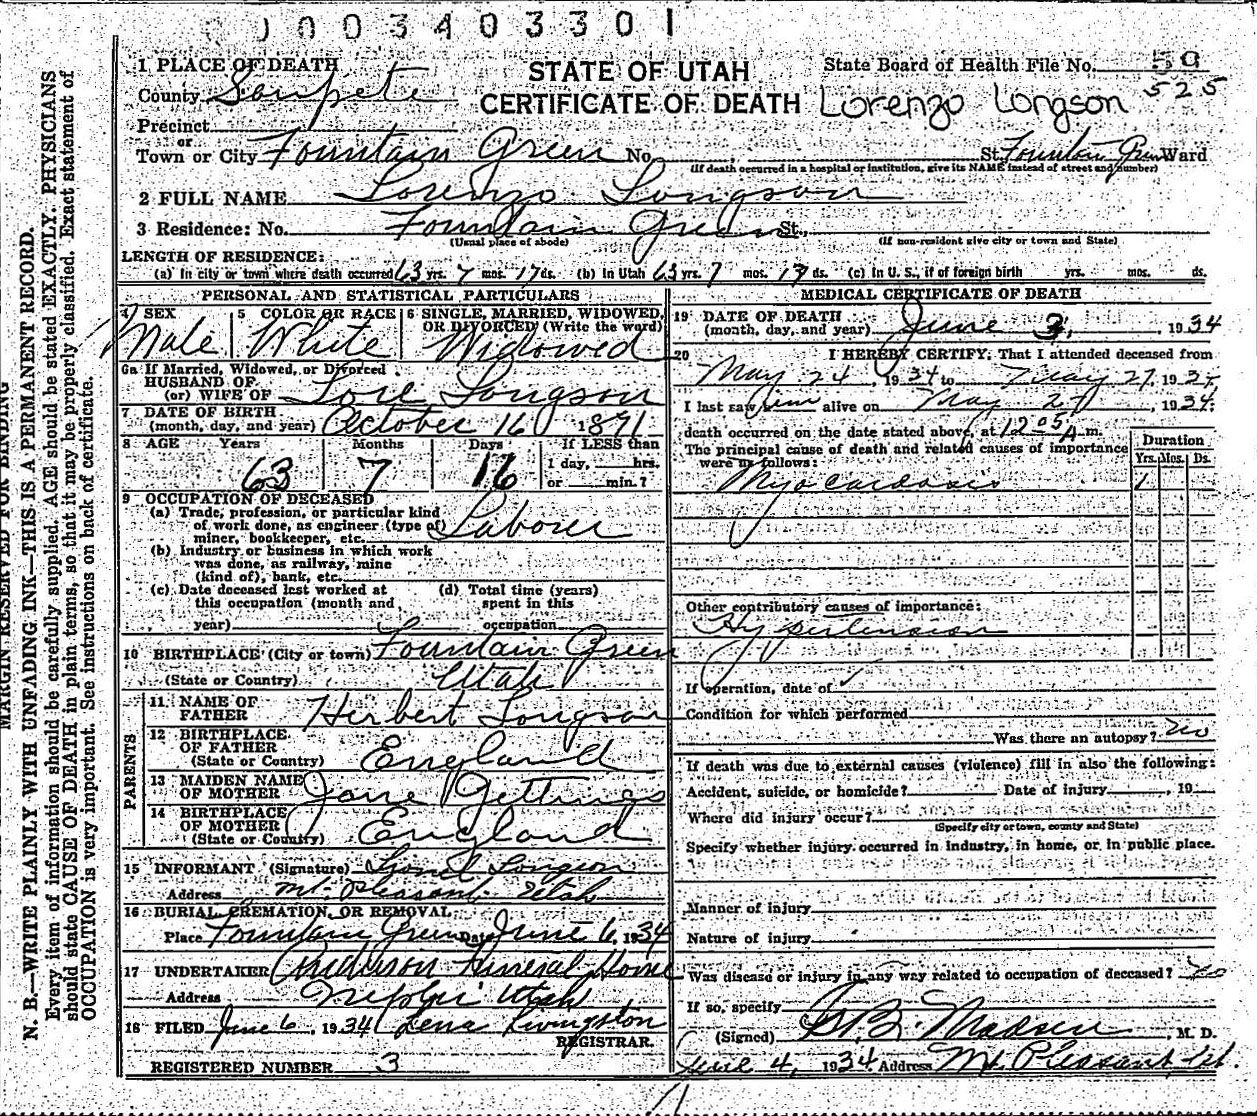 003403301
1 PLACE OF DEATH
STATE OF UTAH
State Board of Health File No. 59
County Sanpete
CERTIFICATE OF DEATH
Lorenzo Longson
525
Precinct
or
Town or City Fountain Green No. St. Fountain Green Ward
(If death occurred in a hospital or institution, give its NAME instead of street and number)
2 FULL NAME Lorenzo Longson
3 Residence: No. Fountain Green St.,
(Usual place of abode) (If non-resident give city or town and State)
LENGTH OF RESIDENCE:
(a) In city or town where death occurred 63 yrs. 7 mos. 17 ds. (b) In Utah 63 yrs. 7 mos. 17 ds. (c) In U. S., if of foreign birth yrs. mos. ds.
PERSONAL AND STATISTICAL PARTICULARS
4 SEX
Male
5 COLOR OR RACE
White
6 SINGLE, MARRIED, WIDOWED,
OR DIVORCED (Write the word)
Widowed
6a If Married, Widowed, or Divorced
HUSBAND OF
(or) WIFE OF Longson
7 DATE OF BIRTH
(month, day, and year) October 16 1871
8 AGE Years Months Days If LESS than
63 7 16 1 day, hrs.
or min.?
9 OCCUPATION OF DECEASED
(a) Trade, profession, or particular kind
of work done, as engineer (type of)
miner, bookkeeper, etc. Laborer
(b) Industry or business in which work
was done, as railway, mine
(kind of), bank, etc.
(c) Date deceased last worked at
this occupation (month and
year)
(d) Total time (years)
spent in this
occupation
10 BIRTHPLACE (City or town) Fountain Green
(State or Country) Utah
PARENTS
11 NAME OF
FATHER Herbert Longson
12 BIRTHPLACE
OF FATHER
(State or Country) England
13 MAIDEN NAME
OF MOTHER Jane Gettings
14 BIRTHPLACE
OF MOTHER
(State or Country) England
15 INFORMANT (Signature) Lionel Longson
Address Mt. Pleasant Utah
16 BURIAL, CREMATION, OR REMOVAL
Place Fountain Green Date June 6, 1934
17 UNDERTAKER Anderson Funeral Home
Address Nephi Utah
18 FILED June 6, 1934 Lena Livingston
REGISTRAR.
REGISTERED NUMBER 3
MEDICAL CERTIFICATE OF DEATH
19 DATE OF DEATH
(month, day, and year) June 3, 1934
20 I HEREBY CERTIFY, That I attended deceased from
May 24, 1934 to May 27, 1934
I last saw him alive on May 27, 1934.
death occurred on the date stated above, at 12 05 A m.
The principal cause of death and related causes of importance
were as follows:
Duration
Yrs. Mos. Ds.
Myocardosis 1
Other contributory causes of importance:
Hypertension
If operation, date of
Condition for which performed
Was there an autopsy? No
If death was due to external causes (violence) fill in also the following:
Accident, suicide, or homicide? Date of injury , 19
Where did injury occur?
(Specify city or town, county and State)
Specify whether injury occurred in industry, in home, or in public place.
Manner of injury
Nature of injury
Was disease or injury in any way related to occupation of deceased? No
If so, specify
(Signed) Madsen, M. D.
June 4, 1934. Address Mt. Pleasant, Ut.
MARGIN RESERVED FOR BINDING
N. B.—WRITE PLAINLY WITH UNFADING INK—THIS IS A PERMANENT RECORD.
Every item of information should be carefully supplied. AGE should be stated EXACTLY. PHYSICIANS
should state CAUSE OF DEATH in plain terms, so that it may be properly classified. Exact statement of
OCCUPATION is very important. See instructions on back of certificate.